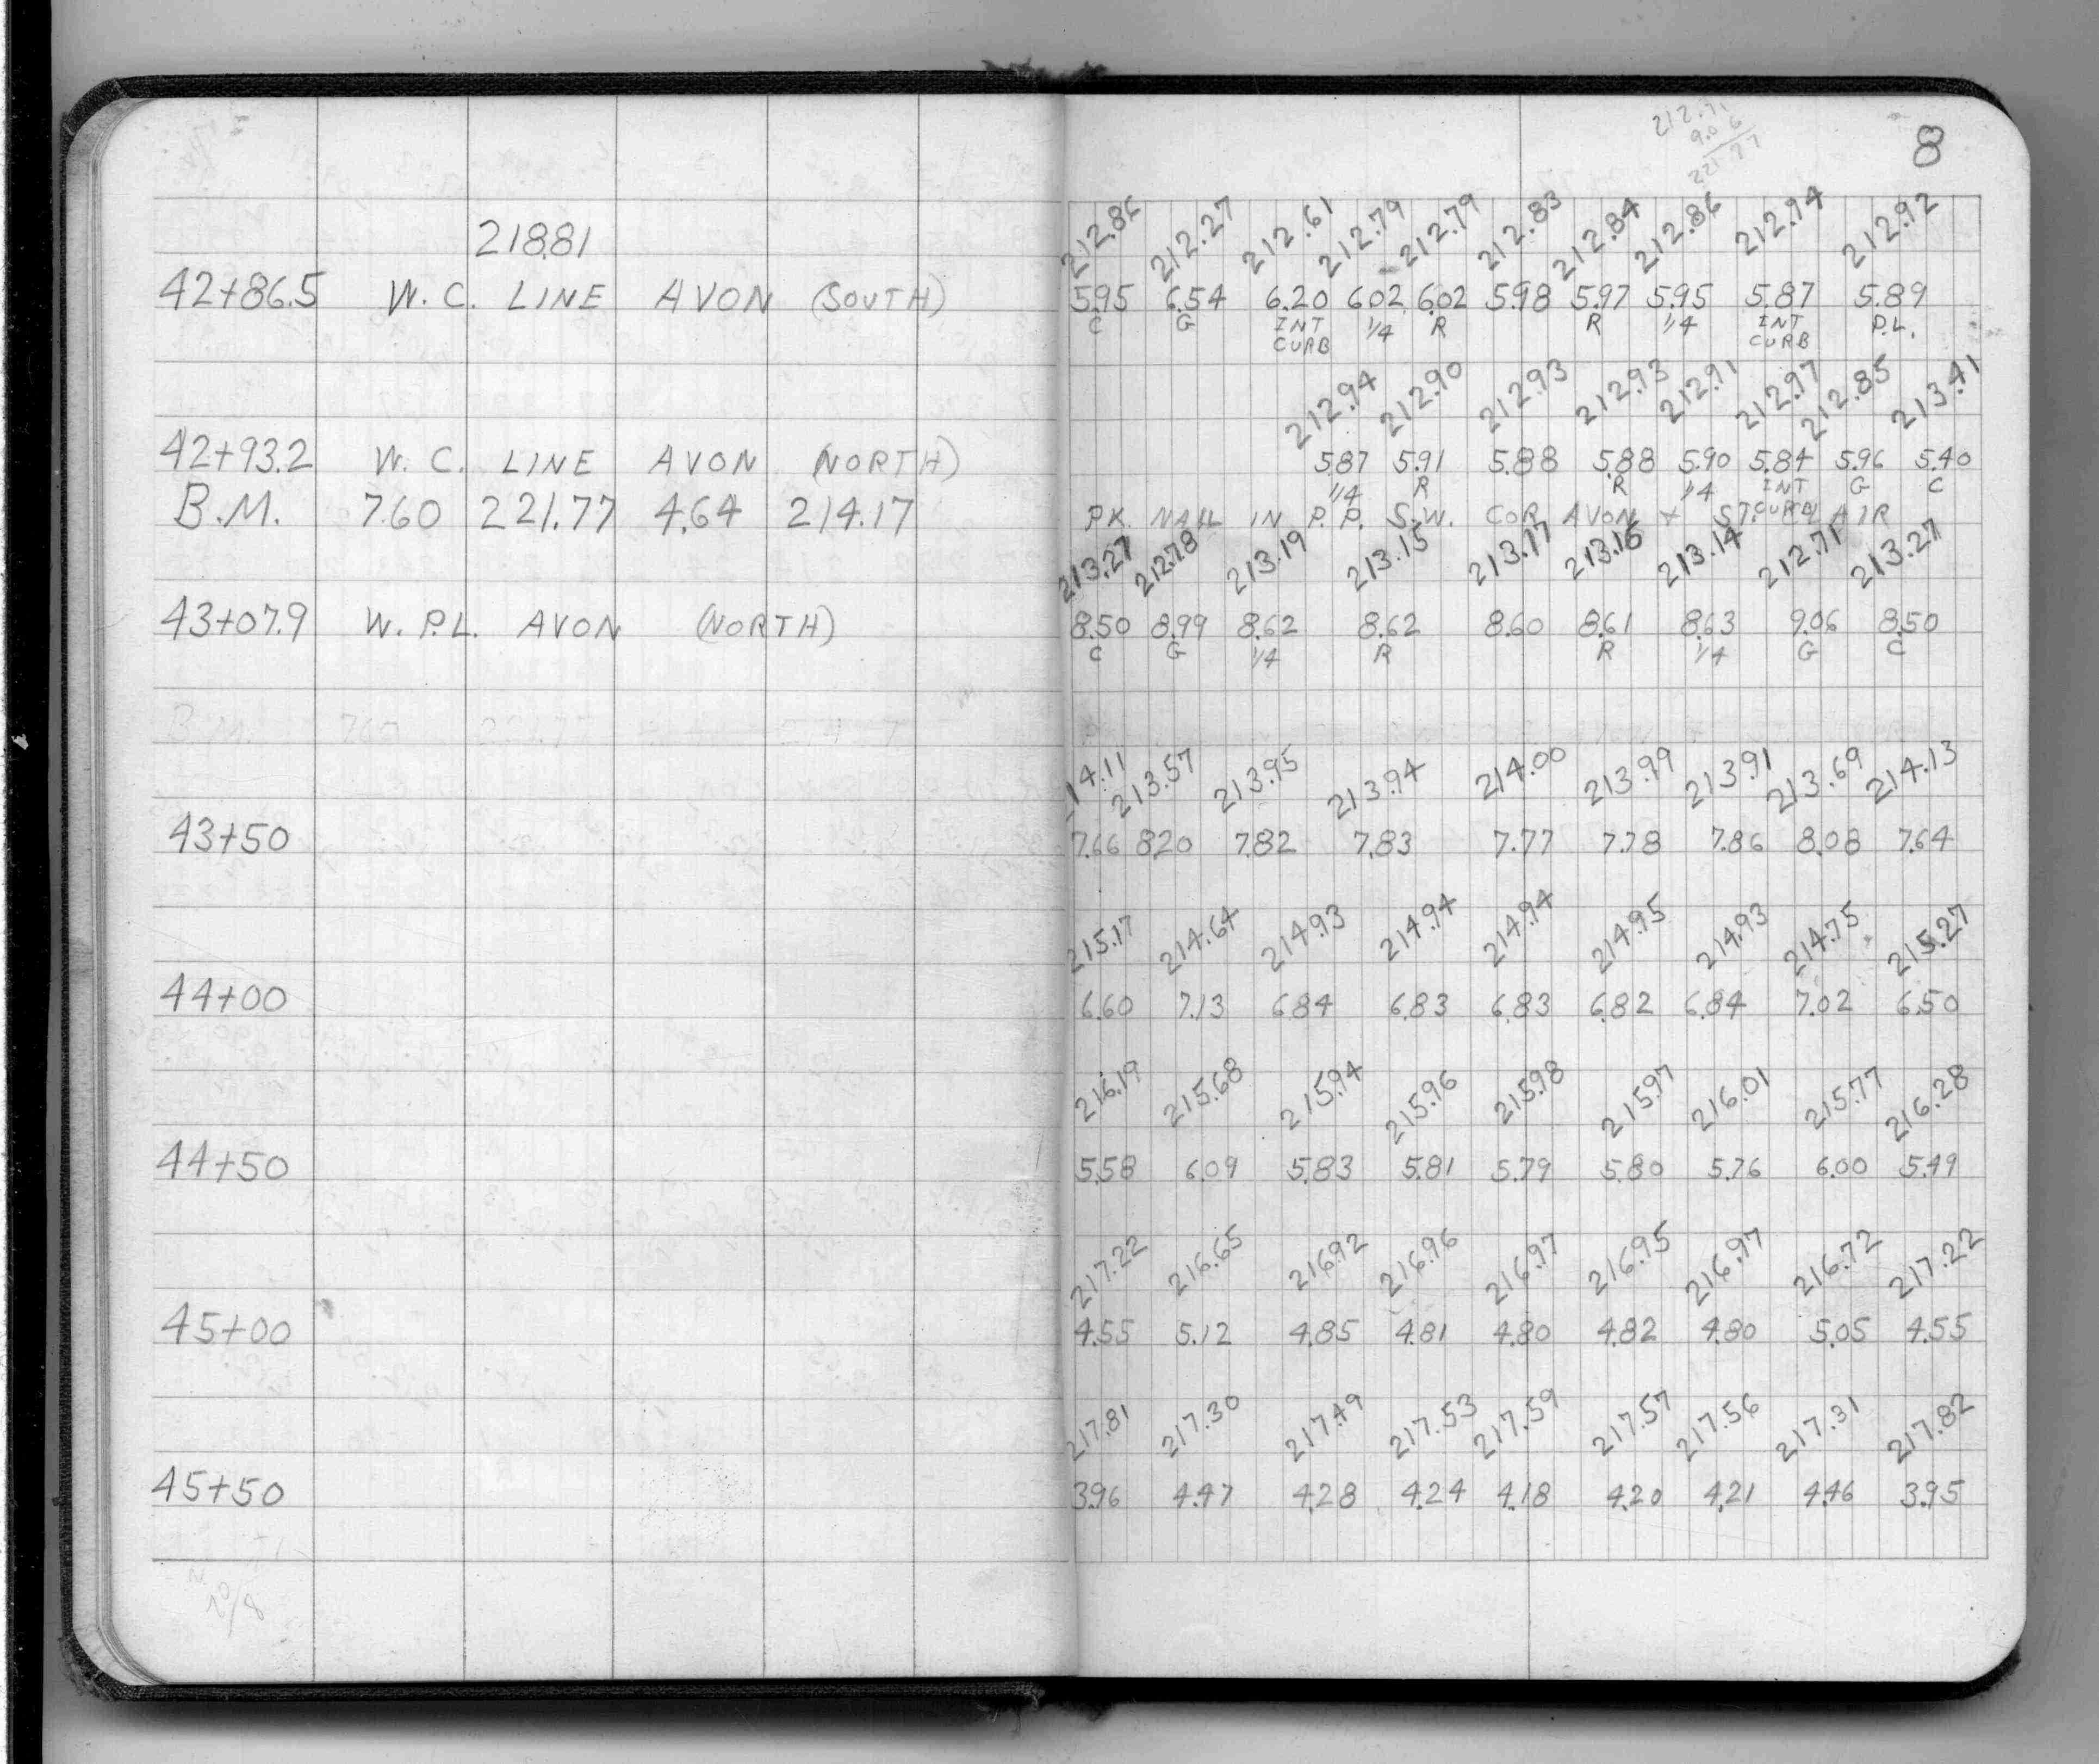 212.71
9.06
221.77
8
218.81
212.86 212.27 212.61 212.79 212.79 212.83 212.84 212.86 212.94 212.92
42+86.5 W. C. LINE AVON (SOUTH) 5.95 6.54 6.20 6.02 6.02 5.98 5.97 5.95 5.87 5.89
C G INT CURB 1/4 R R 1/4 INT CURB P.L.
212.94 212.90 212.93 212.93 212.91 212.97 212.85 213.41
42+93.2 W. C. LINE AVON (NORTH) 5.87 5.91 5.88 5.88 5.90 5.84 5.96 5.40
1/4 R R 1/4 INT CURB G C
B.M. 7.60 221.77 4.64 214.17 P.K. NAIL IN P.P. S.W. COR AVON + ST. CLAIR
213.27 212.78 213.19 213.15 213.17 213.16 213.14 212.71 213.27
43+07.9 W. P.L. AVON (NORTH) 8.50 8.99 8.62 8.62 8.60 8.61 8.63 9.06 8.50
C G 1/4 R R 1/4 G C
B.M. 7.60 221.77
214.11 213.57 213.95 213.94 214.00 213.99 213.91 213.69 214.13
43+50 7.66 8.20 7.82 7.83 7.77 7.78 7.86 8.08 7.64
215.17 214.64 214.93 214.94 214.94 214.95 214.93 214.75 215.27
44+00 6.60 7.13 6.84 6.83 6.83 6.82 6.84 7.02 6.50
216.19 215.68 215.94 215.96 215.98 215.97 216.01 215.77 216.28
44+50 5.58 6.09 5.83 5.81 5.79 5.80 5.76 6.00 5.49
217.22 216.65 216.92 216.96 216.97 216.95 216.97 216.72 217.22
45+00 4.55 5.12 4.85 4.81 4.80 4.82 4.80 5.05 4.55
217.81 217.30 217.49 217.53 217.59 217.57 217.56 217.31 217.82
45+50 3.96 4.47 4.28 4.24 4.18 4.20 4.21 4.46 3.95